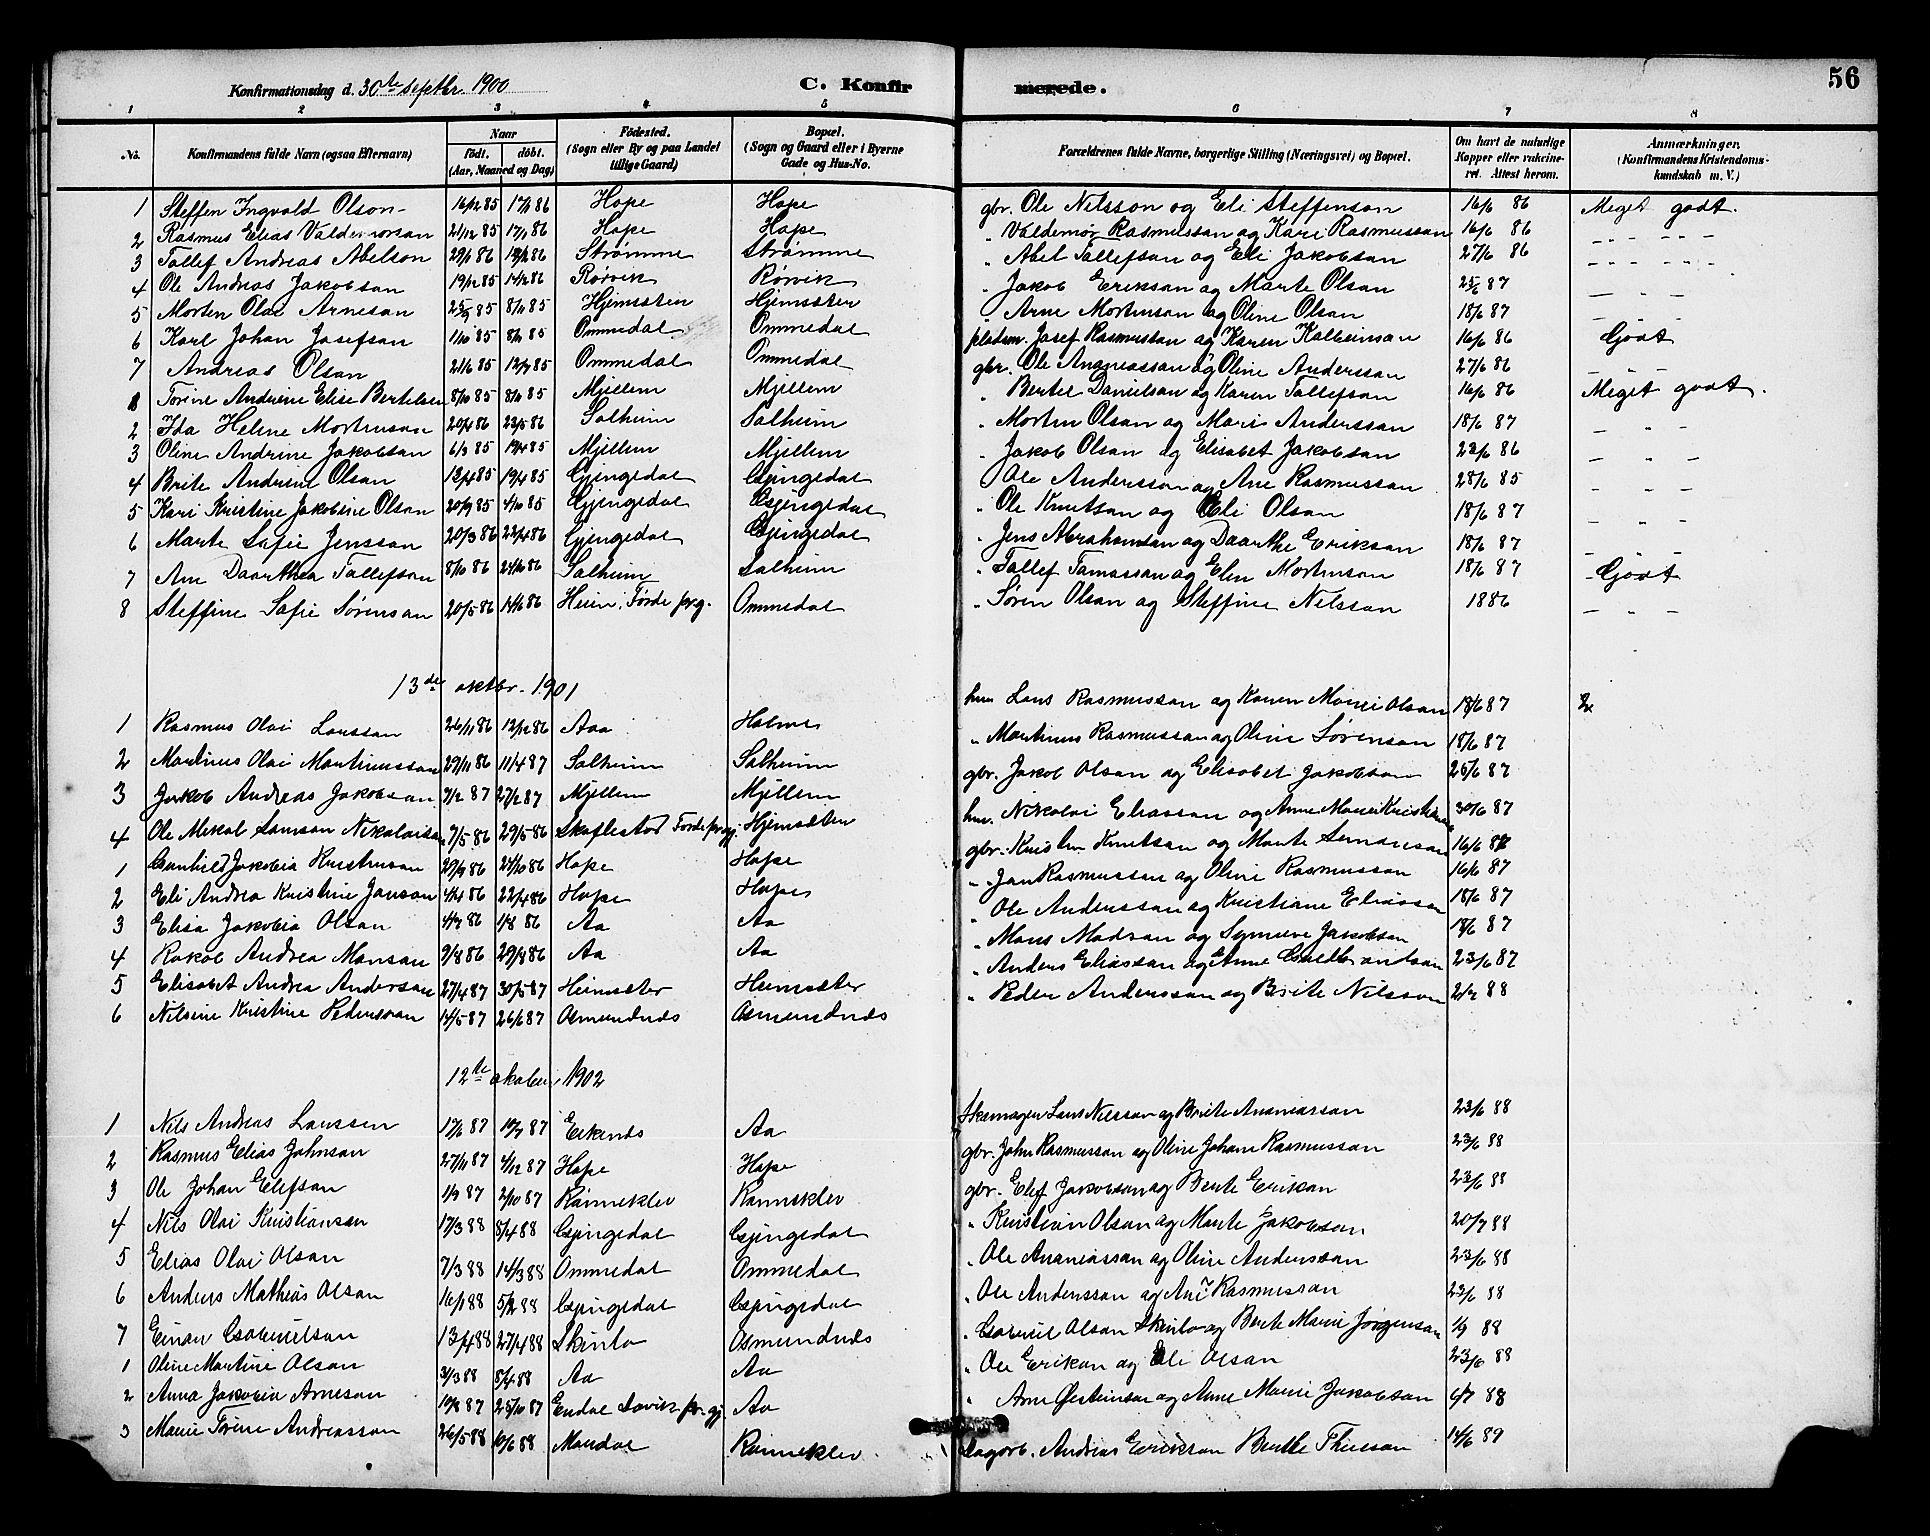 56
Konfirmationsdag d. 30te septbr. 1900 C. Konfirmerede.
1 2 3 4 5 6 7 8
No. Konfirmandens fulde Navn (ogsaa Efternavn) Naar födt. döbt. (Aar, Maaned og Dag) Födested. (Sogn eller By og paa Landet tillige Gaard) Bopæl. (Sogn og Gaard eller i Byerne Gade og Hus-No. Forældrenes fulde Navne, borgerlige Stilling (Næringsvei) og Bopæl. Om havt de naturlige Kopper eller vakcineret. Attest herom. Anmærkninger. (Konfirmandens Kristendomskundskab m. V.)
1 Steffen Ingvald Olson 16/12 85 17/1 86 Hope Hope gbr. Ole Nilsson og Eli Steffenson 16/6 86 Meget godt.
2 Rasmus Elias Valdemorsan 21/12 85 17/1 86 Hope Hope " Valdemor Rasmussan og Kari Rasmussan 16/6 86 - - - -
3 Tollef Andreas Abelson 29/1 86 Strømme Strømme " Abel Tollefsan og Eli Jakobsan 27/6 86 - - - -
4 Ole Andreas Jakobsan 19/12 85 14/2 86 Rørvik Rørvik " Jakob Eriksan og Marte Olsan 23/6 87 - " -
5 Morten Olai Arnesan 85 8/11 85 Hjemseter Hjemseter " Arne Mortenson og Oline Olson 18/6 87 - " -
6 Karl Johan Josefsan 1/10 85 85 Ommedal Ommedal pladsm. Josef Rasmussan og Karen Kolbeinsan 16/6 86 Godt
7 Andreas Olsan 21/6 85 12/7 85 Ommedal Ommedal gbr. Ole Ananiassan og Oline Andersson 27/6 86 - " -
1 Torine Andrine Elise Bertelsen 8/10 85 8/11 85 Mjellem Mjellem " Bertel Danielsan og Karen Tollefsan 16/6 86 Meget godt.
2 Ida Helene Mortensan 20/4 86 23/5 86 Solheim Solheim " Morten Olsan og Mari Anderssan 18/6 87 - " -
3 Oline Andrine Jakobsan 6/3 85 19/4 85 Mjellem Mjellem " Jakob Olsan og Elisabet Jakobsan 23/6 86 - " -
4 Brite Andrine Olsan 12/4 85 19/4 85 Gjengedal Gjengedal " Ole Andersson og Ane Rasmussan 28/6 85 - " -
5 Kari Kristine Jakobine Olson 20/9 85 4/10 85 Gjengedal Gjengedal " Ole Knutsan og Eli Olsan 18/6 87 - " -
6 Marte Sofie Jenssan 20/3 86 22/4 86 Gjengedal Gjengedal " Jens Abrahamsan og Daarthe Eriksan 18/6 87 - " -
7 Ane Daarthea Tollefsan 8/10 86 24/10 86 Solheim Solheim " Tollef Tomassan og Elen Mortensan 18/6 87 - Godt
8 Steffine Sofie Sørensan 20/5 86 14/6 86 Heien, Førde prg. Ommedal " Søren Olsan og Steffine Nilsson 1886 - " -
13de oktbr. 1901
1 Rasmus Olai Larssan 26/11 86 12/12 86 Aaa Holme hm Lars Rasmussan og Karen Marie Olsan 18/6 87
2 Martinus Olai Martinussan 29/11 86 11/4 87 Solheim Solheim " Martinus Rasmussan og Oline Sørensan 18/6 87
3 Jakob Andreas Jakobsan 7/2 87 27/2 87 Mjellem Mjellem gbr. Jakob Olsan og Elisabet Jakobsan 25/6 87
4 Ole Mikal Samson Nikolaisen 7/5 86 29/5 86 Skaflestad Førde prgj. Hjemseter hm. Nikolai Eliassan og Anne Marie Kristiansen 30/6 87
1 Gunhild Jakobia Kristensan 29/9 86 24/10 86 Hope Hope gbr. Kristen Knutsan og Marte 16/6 87
2 Eli Andrea Kristine Jansan 4/4 86 22/4 86 Hope Hope " Jan Rasmussan og Oline Rasmussan 16/6 87
3 Elisa Jakobia Olsan 4/7 86 1/8 86 Aa Aa " Ole Anderssan og Kristiane Eliassan 18/6 87
4 Rakel Andrea Monsan 9/8 86 29/8 86 Aa Aa " Mons Madsan og Synneve Jakobsan 18/6 87
5 Elisabet Andrea Andersan 27/4 87 30/5 87 Heimseter Heimseter " Anders Eliassan og Anne Gulbrandsan 23/6 87
6 Nilsine Kristine Pedersan 14/5 87 26/6 87 Osmundnes Osmundnes " Peder Anderssan og Brite Nilsson 2/7 88
12te oktober 1902
1 Nils Andreas Larssen 17/6 87 10/7 87 Eikenes Aa Skomager Lars Nilsson og Brite Ananiassan 23/6 88
2 Rasmus Elias Johnsan 27/11 87 4/12 87 Hope Hope gbr. John Rasmussan og Oline Johane Rasmussan 23/6 88
3 Ole Johan Elefsan 1/9 87 2/10 87 Ranneklev Ranneklev gbr. Elef Jakobsan og Berte Eriksan 23/6 88
4 Nils Olai Kristiansan 17/3 88 8/4 88 Gjengedal Gjengedal " Kristian Olsan og Marte Jakobsan 20/7 88
5 Elias Olai Olsan 7/3 88 14/3 88 Ommedal Ommedal " Ole Ananiassan og Oline Anderssan 23/6 88
6 Anders Mathias Olsan 16/1 88 5/2 88 Gjengedal Gjengedal " Ole Anderssan og Ane Rasmussan 23/6 88
7 Einar Gabrielsan 13/4 88 27/4 88 Skinlo Osmundnes " Gabriel Olsan Skinlo og Berte Marie Jørgensan 1/9 88
1 Oline Martine Olsan 31/3 88 8/4 88 Aa Aa " Ole Eriksan og Eli Olsan 23/6 88
2 Anna Jakobia Arnesan 19/8 87 25/10 87 Endal Davik prgj. Aa " Arne Østensan og Anne Marie Jakobsan 6/7 88
3 Marie Torine Andreassan 26/5 88 10/6 88 Mandal Ranneklev Dagarb. Andreas Eriksan Berthe Thuesan 14/6 89